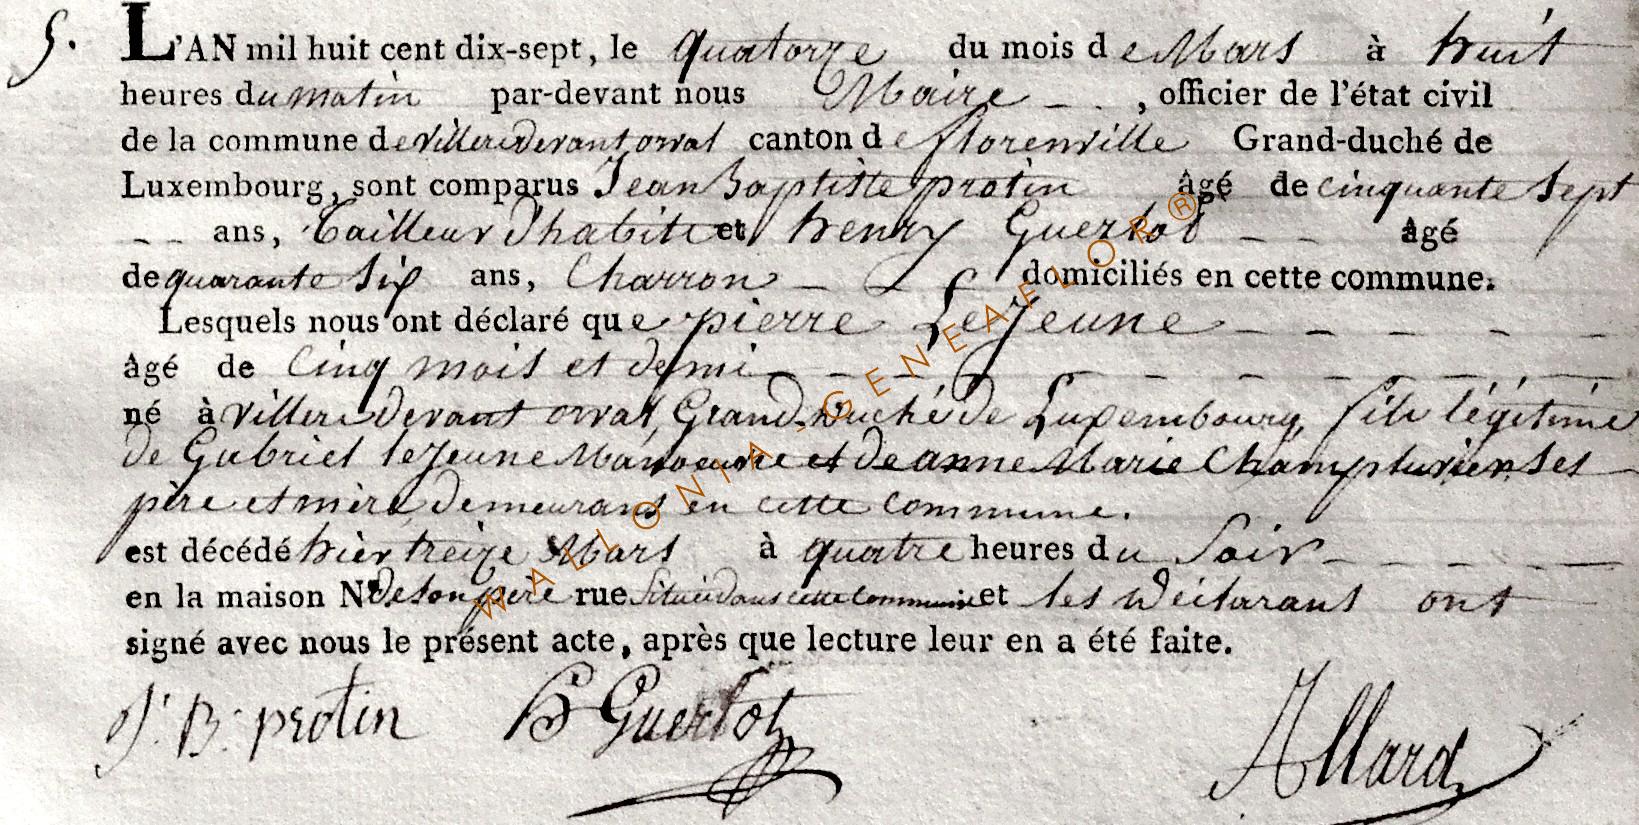 5. L'AN mil huit cent dix-sept, le quatorze du mois de Mars à huit
heures du matin par-devant nous Maire - . , officier de l'état civil
de la commune de villers devant orval canton de florenville Grand-duché de
Luxembourg, sont comparus Jean Baptiste protin âgé de cinquante sept
- - ans, Tailleur d'habits et henry Guerlot - - âgé
de quarante six ans, Charron - domiciliés en cette commune.
Lesquels nous ont déclaré que pierre Lejeune - - - - -
âgé de cinq mois et demi - - - - - - - -
né à villers devant orval, Grand-Duché de Luxembourg, fils légitime
de Gabriel lejeune Manoeuvre et de anne Marie Champlurier Ses
père et mère demeurans en cette commune.
est décédé hier treize Mars à quatre heures du Soir - - - - -
en la maison N° de son père rue Située dans cette commune et les déclarans ont
signé avec nous le présent acte, après que lecture leur en a été faite.
J. B. protin H Guerlot Allard
WALLONIA - GENEAFLOR ®